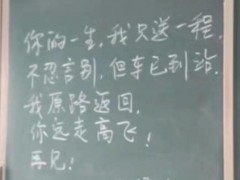 你的一生，我只送一程，
不忍言别，但车已到站，
我原路返回，
你远走高飞！
再见！